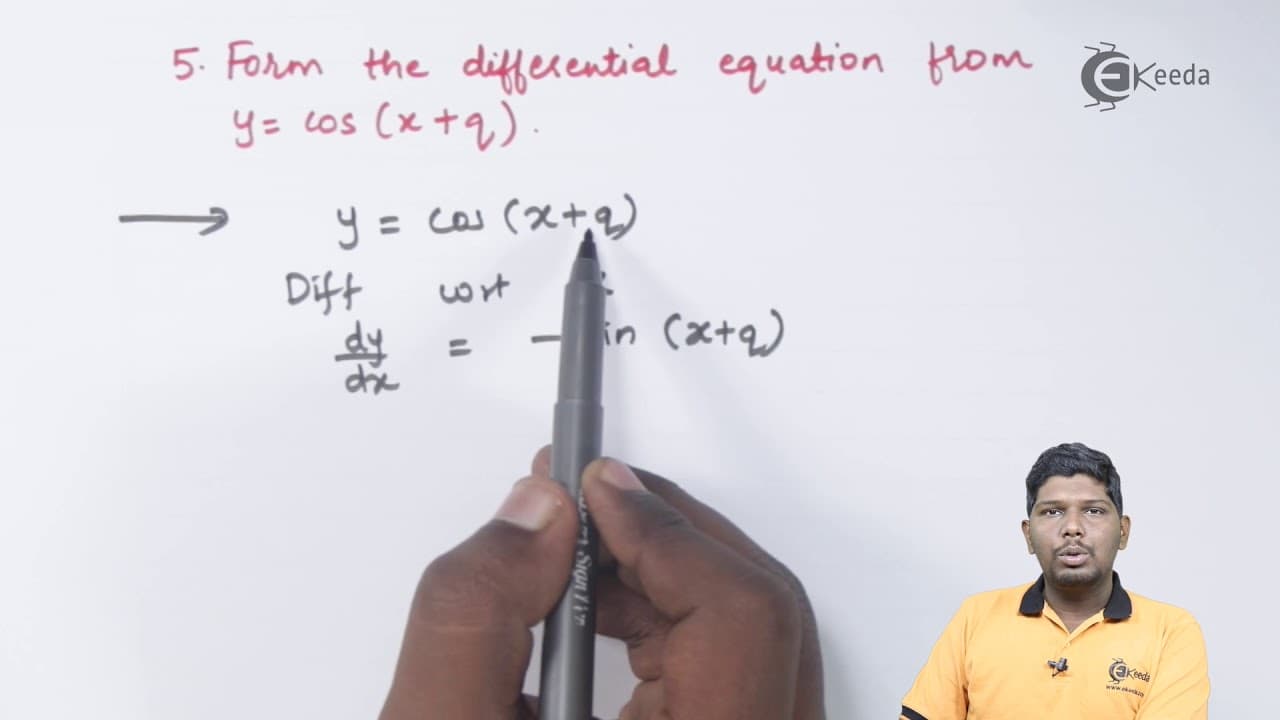 5. Form the differential equation from
y = cos (x+q).
EKeeda
y = cos (x+q)
Diff wrt
dy/dx = - in (x+q)
EKeeda